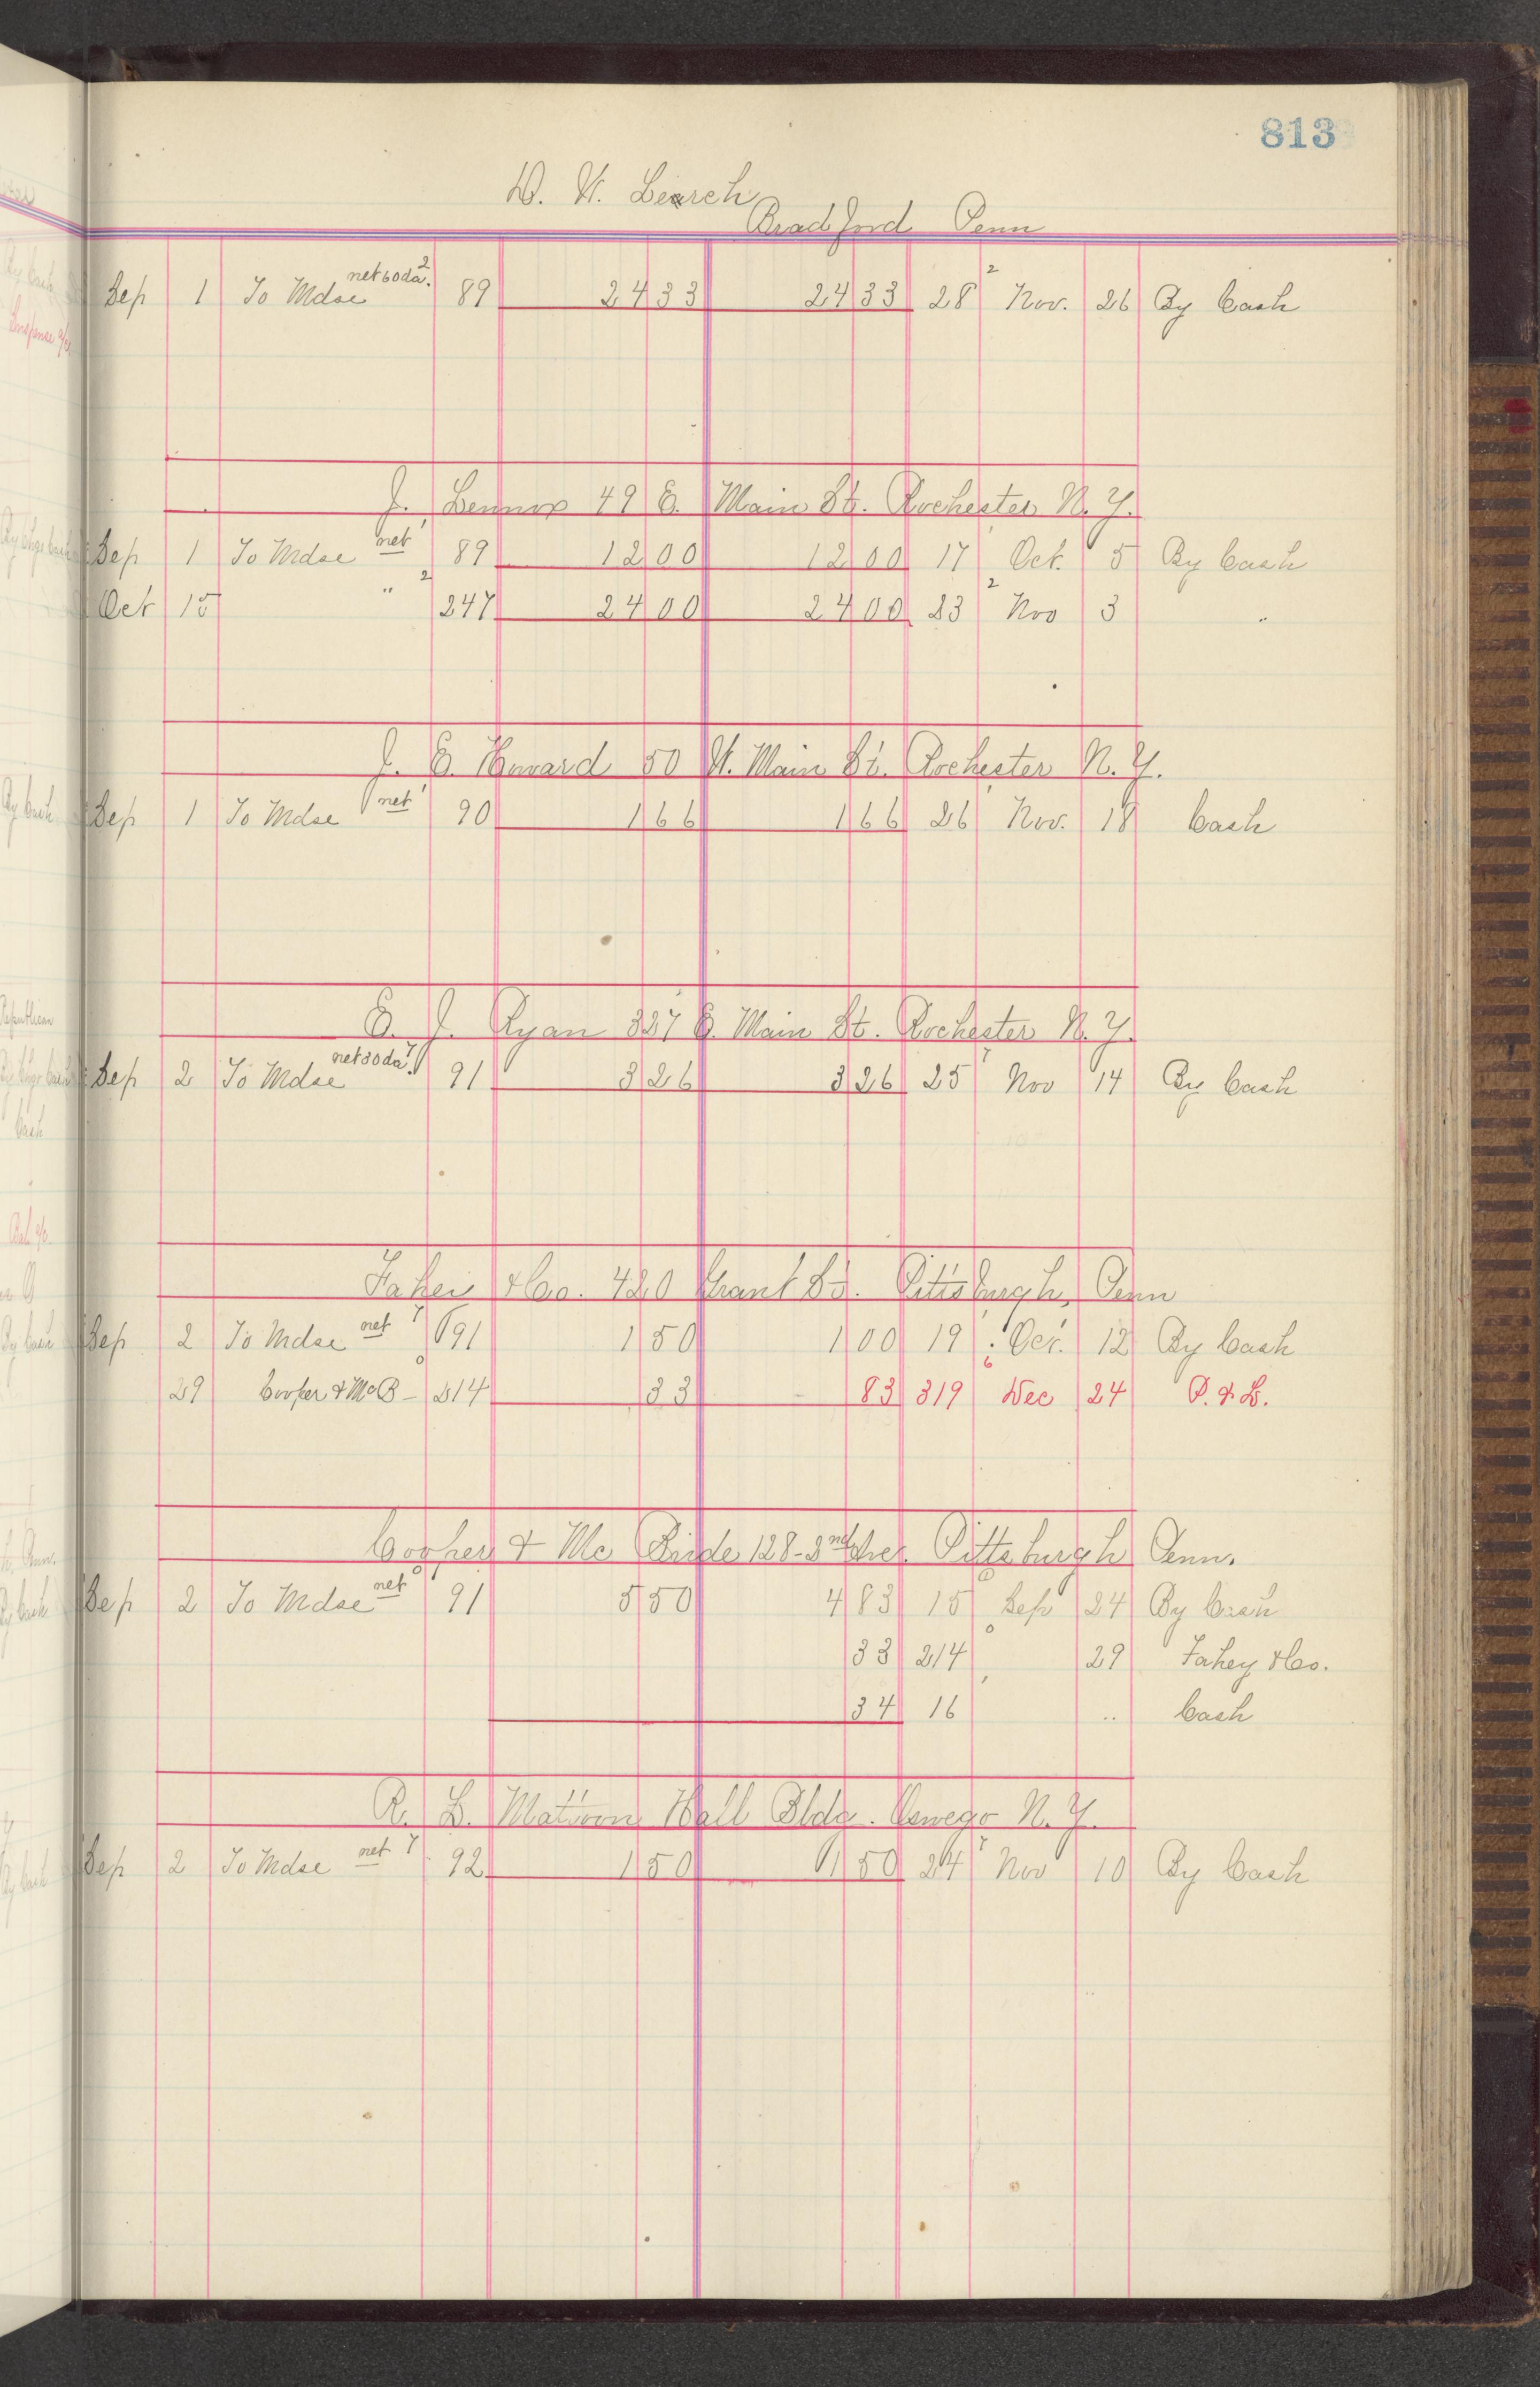 813
D. H. Learch
Bradford Penn
Sep 1 To Mdse net 60 da. 2 89 24 33 24 33 28 2 Nov. 26 By Cash
J. Lennox 49 E. Main St. Rochester N. Y.
Sep 1 To Mdse net 1 89 12 00 12 00 17 1 Oct. 5 By Cash
Oct 15 " 2 247 24 00 24 00 23 2 Nov 3 "
J. E. Howard 50 W. Main St. Rochester N. Y.
Sep 1 To Mdse net 1 90 1 66 1 66 26 1 Nov. 18 Cash
E. J. Ryan 327 E. Main St. Rochester N. Y.
Sep 2 To Mdse net 30 da. 7 91 3 26 3 26 25 7 Nov 14 By Cash
Fahey & Co. 420 Grant St. Pittsburgh, Penn
Sep 2 To Mdse net 7 91 1 50 1 00 19 Oct. 12 By Cash
29 Cooper & McB - 0 214 33 83 319 6 Dec 24 P. & L.
Cooper & Mc Bride 128-3rd Ave. Pittsburgh Penn.
Sep 2 To Mdse net 0 91 5 50 4 83 15 0 Sep 24 By Cash
33 214 0 29 Fahey & Co.
34 16 " Cash
R. L. Mattoon Hall Bldg. Oswego N. Y.
Sep 2 To Mdse net 7 92 1 50 1 50 24 7 Nov 10 By Cash